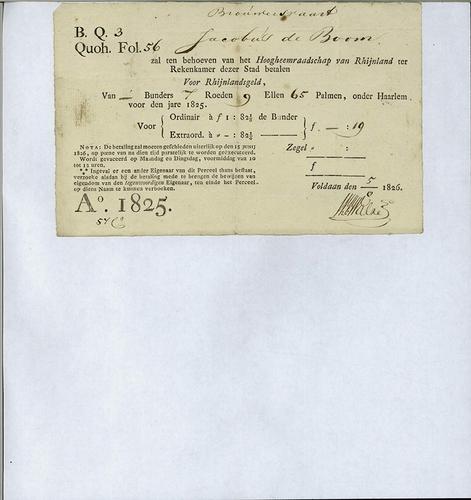 Brouwersvaart
B. Q. 3
Quoh. Fol. 56 Jacobus de Boom
zal ten behoeven van het Hoogheemraadschap van Rhijnland ter
Rekenkamer dezer Stad betalen
Voor Rhijnlandsgeld,
Van — Bunders 7 Roeden 9 Ellen 65 Palmen, onder Haarlem
voor den jare 1825.
Voor { Ordinair à ƒ 1 : 82½ de Bunder } ƒ. — : 19
Extraord. à » – : 82½
Zegel » :
ƒ :
NOTA: De betaling zal moeten geschieden uiterlijk op den 15 junij
1826, op pœne van na dien tijd paratelijk te worden geëxecuteerd.
Wordt gevaceerd op Maandag en Dingsdag, voormiddag van 10
tot 12 uren.
Ingeval er een ander Eigenaar van dit Perceel thans bestaat,
verzoeke alsdan bij de betaling mede te brengen de bewijzen van
eigendom van den tegenwoordigen Eigenaar, ten einde het Perceel
op diens Naam te kunnen verboeken.
Voldaan den 5/8 1826.
A°. 1825.
57